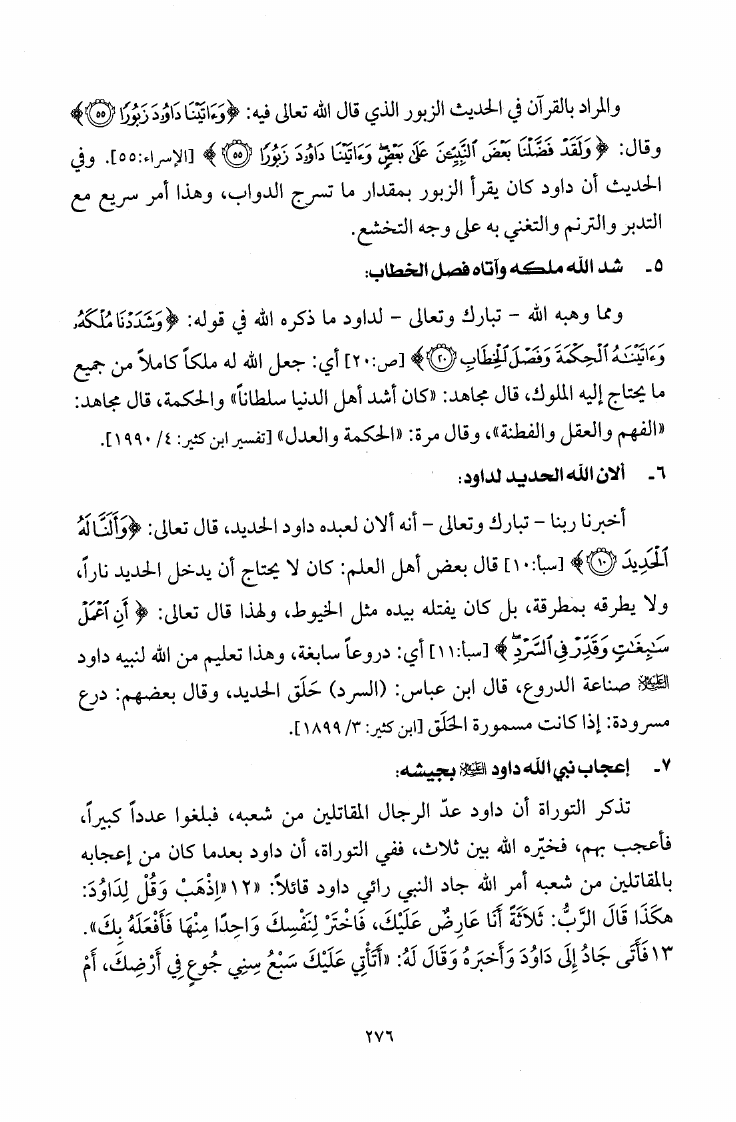 والمراد بالقرآن في الحديث الزبور الذي قال الله تعالى فيه: ﴿وَءَاتَيْنَا دَاوُۥدَ زَبُورًا ۝٥٥﴾
وقال: ﴿وَلَقَدْ فَضَّلْنَا بَعْضَ ٱلنَّبِيِّـۧنَ عَلَىٰ بَعْضٍۖ وَءَاتَيْنَا دَاوُۥدَ زَبُورًا ۝٥٥﴾ [الإسراء:٥٥]. وفي
الحديث أن داود كان يقرأ الزبور بمقدار ما تسرج الدواب، وهذا أمر سريع مع
التدبر والترنم والتغني به على وجه التخشع.
٥ـ شد الله ملكه وآتاه فصل الخطاب:
ومما وهبه الله – تبارك وتعالى – لداود ما ذكره الله في قوله: ﴿وَشَدَدْنَا مُلْكَهُۥ
وَءَاتَيْنَـٰهُ ٱلْحِكْمَةَ وَفَصْلَ ٱلْخِطَابِ ۝٢٠﴾ [ص:٢٠] أي: جعل الله له ملكاً كاملاً من جميع
ما يحتاج إليه الملوك، قال مجاهد: «كان أشد أهل الدنيا سلطاناً» والحكمة، قال مجاهد:
«الفهم والعقل والفطنة»، وقال مرة: «الحكمة والعدل» [تفسير ابن كثير: ٤/ ١٩٩٠].
٦ـ ألان الله الحديد لداود:
أخبرنا ربنا – تبارك وتعالى – أنه ألان لعبده داود الحديد، قال تعالى: ﴿وَأَلَنَّا لَهُ
ٱلْحَدِيدَ ۝١٠﴾ [سبأ:١٠] قال بعض أهل العلم: كان لا يحتاج أن يدخل الحديد ناراً،
ولا يطرقه بمطرقة، بل كان يفتله بيده مثل الخيوط، ولهذا قال تعالى: ﴿أَنِ ٱعْمَلْ
سَـٰبِغَـٰتٍ وَقَدِّرْ فِي ٱلسَّرْدِۖ﴾ [سبأ:١١] أي: دروعاً سابغة، وهذا تعليم من الله لنبيه داود
عليه السلام صناعة الدروع، قال ابن عباس: (السرد) حَلَق الحديد، وقال بعضهم: درع
مسرودة: إذا كانت مسمورة الحَلَق [ابن كثير: ٣/ ١٨٩٩].
٧ـ إعجاب نبي الله داود عليه السلام بجيشه:
تذكر التوراة أن داود عدّ الرجال المقاتلين من شعبه، فبلغوا عدداً كبيراً،
فأعجب بهم، فخيّره الله بين ثلاث، ففي التوراة، أن داود بعدما كان من إعجابه
بالمقاتلين من شعبه أمر الله جاد النبي رائي داود قائلاً: «١٢«اِذْهَبْ وَقُلْ لِدَاوُدَ:
هكَذَا قَالَ الرَّبُّ: ثَلاَثَةً أَنَا عَارِضٌ عَلَيْكَ، فَاخْتَرْ لِنَفْسِكَ وَاحِدًا مِنْهَا فَأَفْعَلَهُ بِكَ».
١٣فَأَتَى جَادُ إِلَى دَاوُدَ وَأَخبَرَهُ وَقَالَ لَهُ: «أَتَأْتِي عَلَيْكَ سَبْعُ سِنِي جُوعٍ فِي أَرْضِكَ، أَمْ
٢٧٦